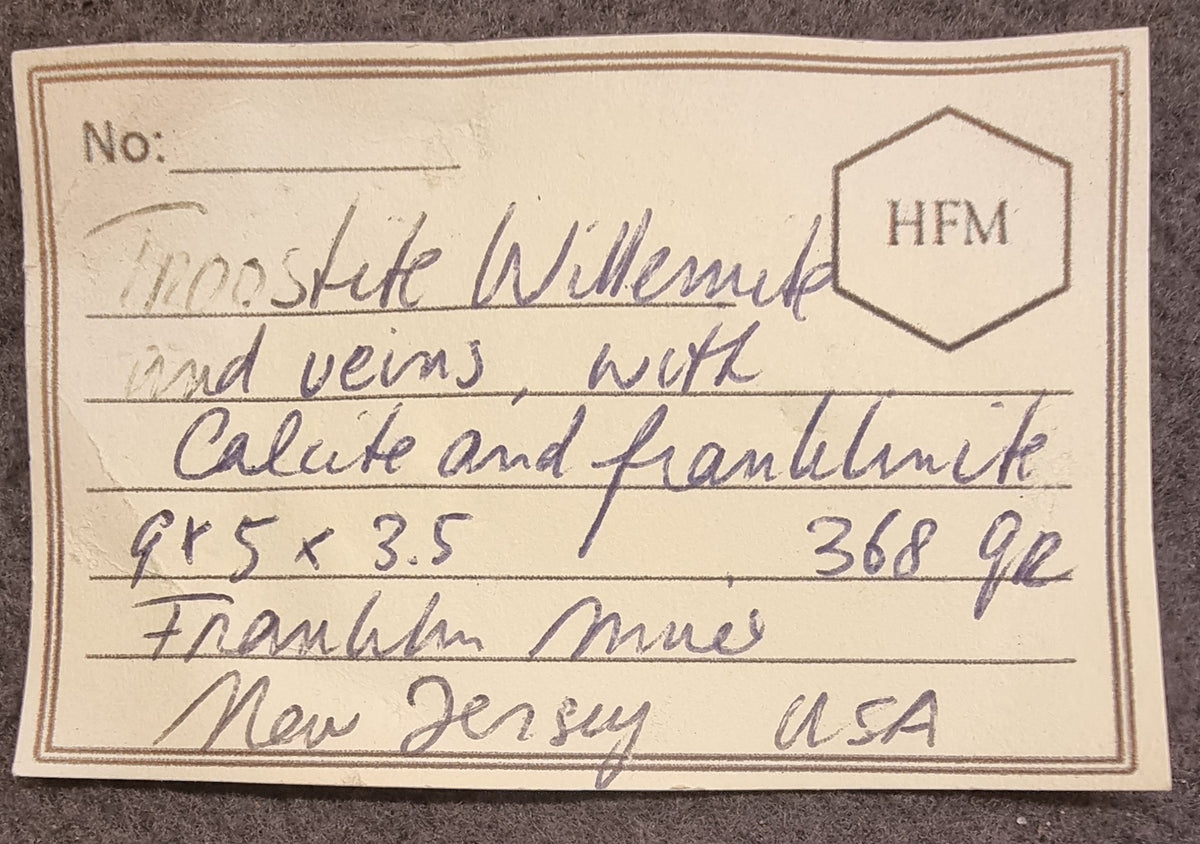 No:
HFM
Troostite Willemite
and veins, with
Calcite and franklinite
9x5 x 3.5 368 gr
Franklin Mine
New Jersey USA